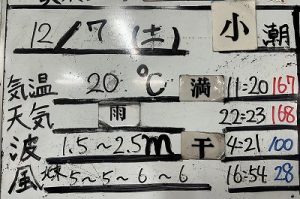 12/7(土) 小潮
気温 20℃ 満 11:20 167
天気 雨 22:23 168
波 1.5~2.5m 干 4:21 100
風 北東5~5~6~6 16:54 28